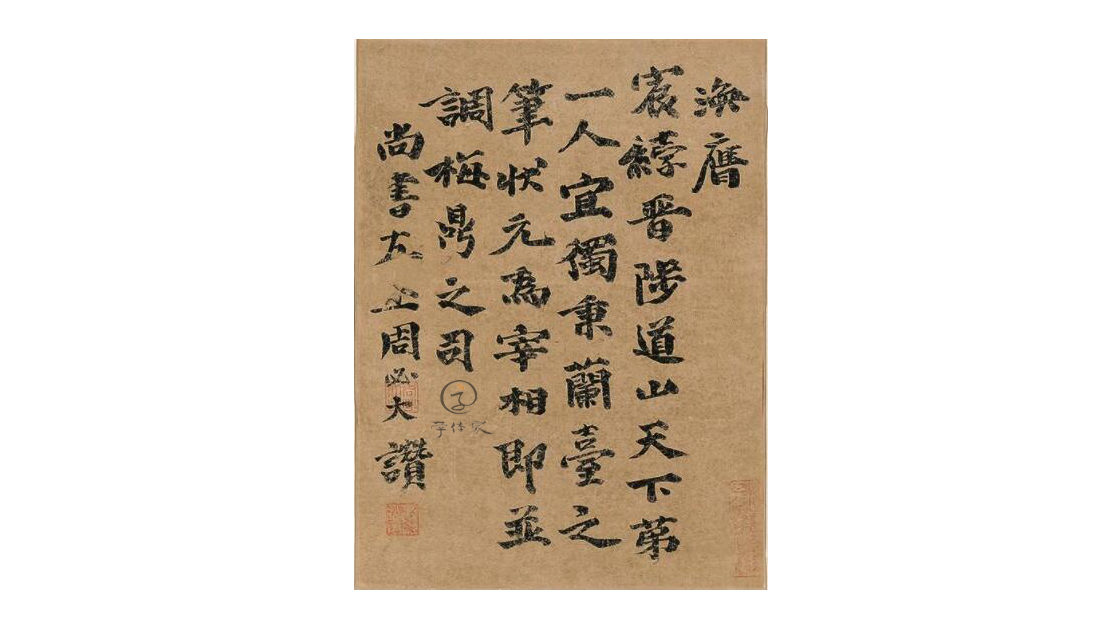 渙膺
宸綍晉陟道山天下苐
一人宜獨秉蘭臺之
筆狀元為宰相即並
調梅鼎之司
尚書左丞周必大讚
字体家